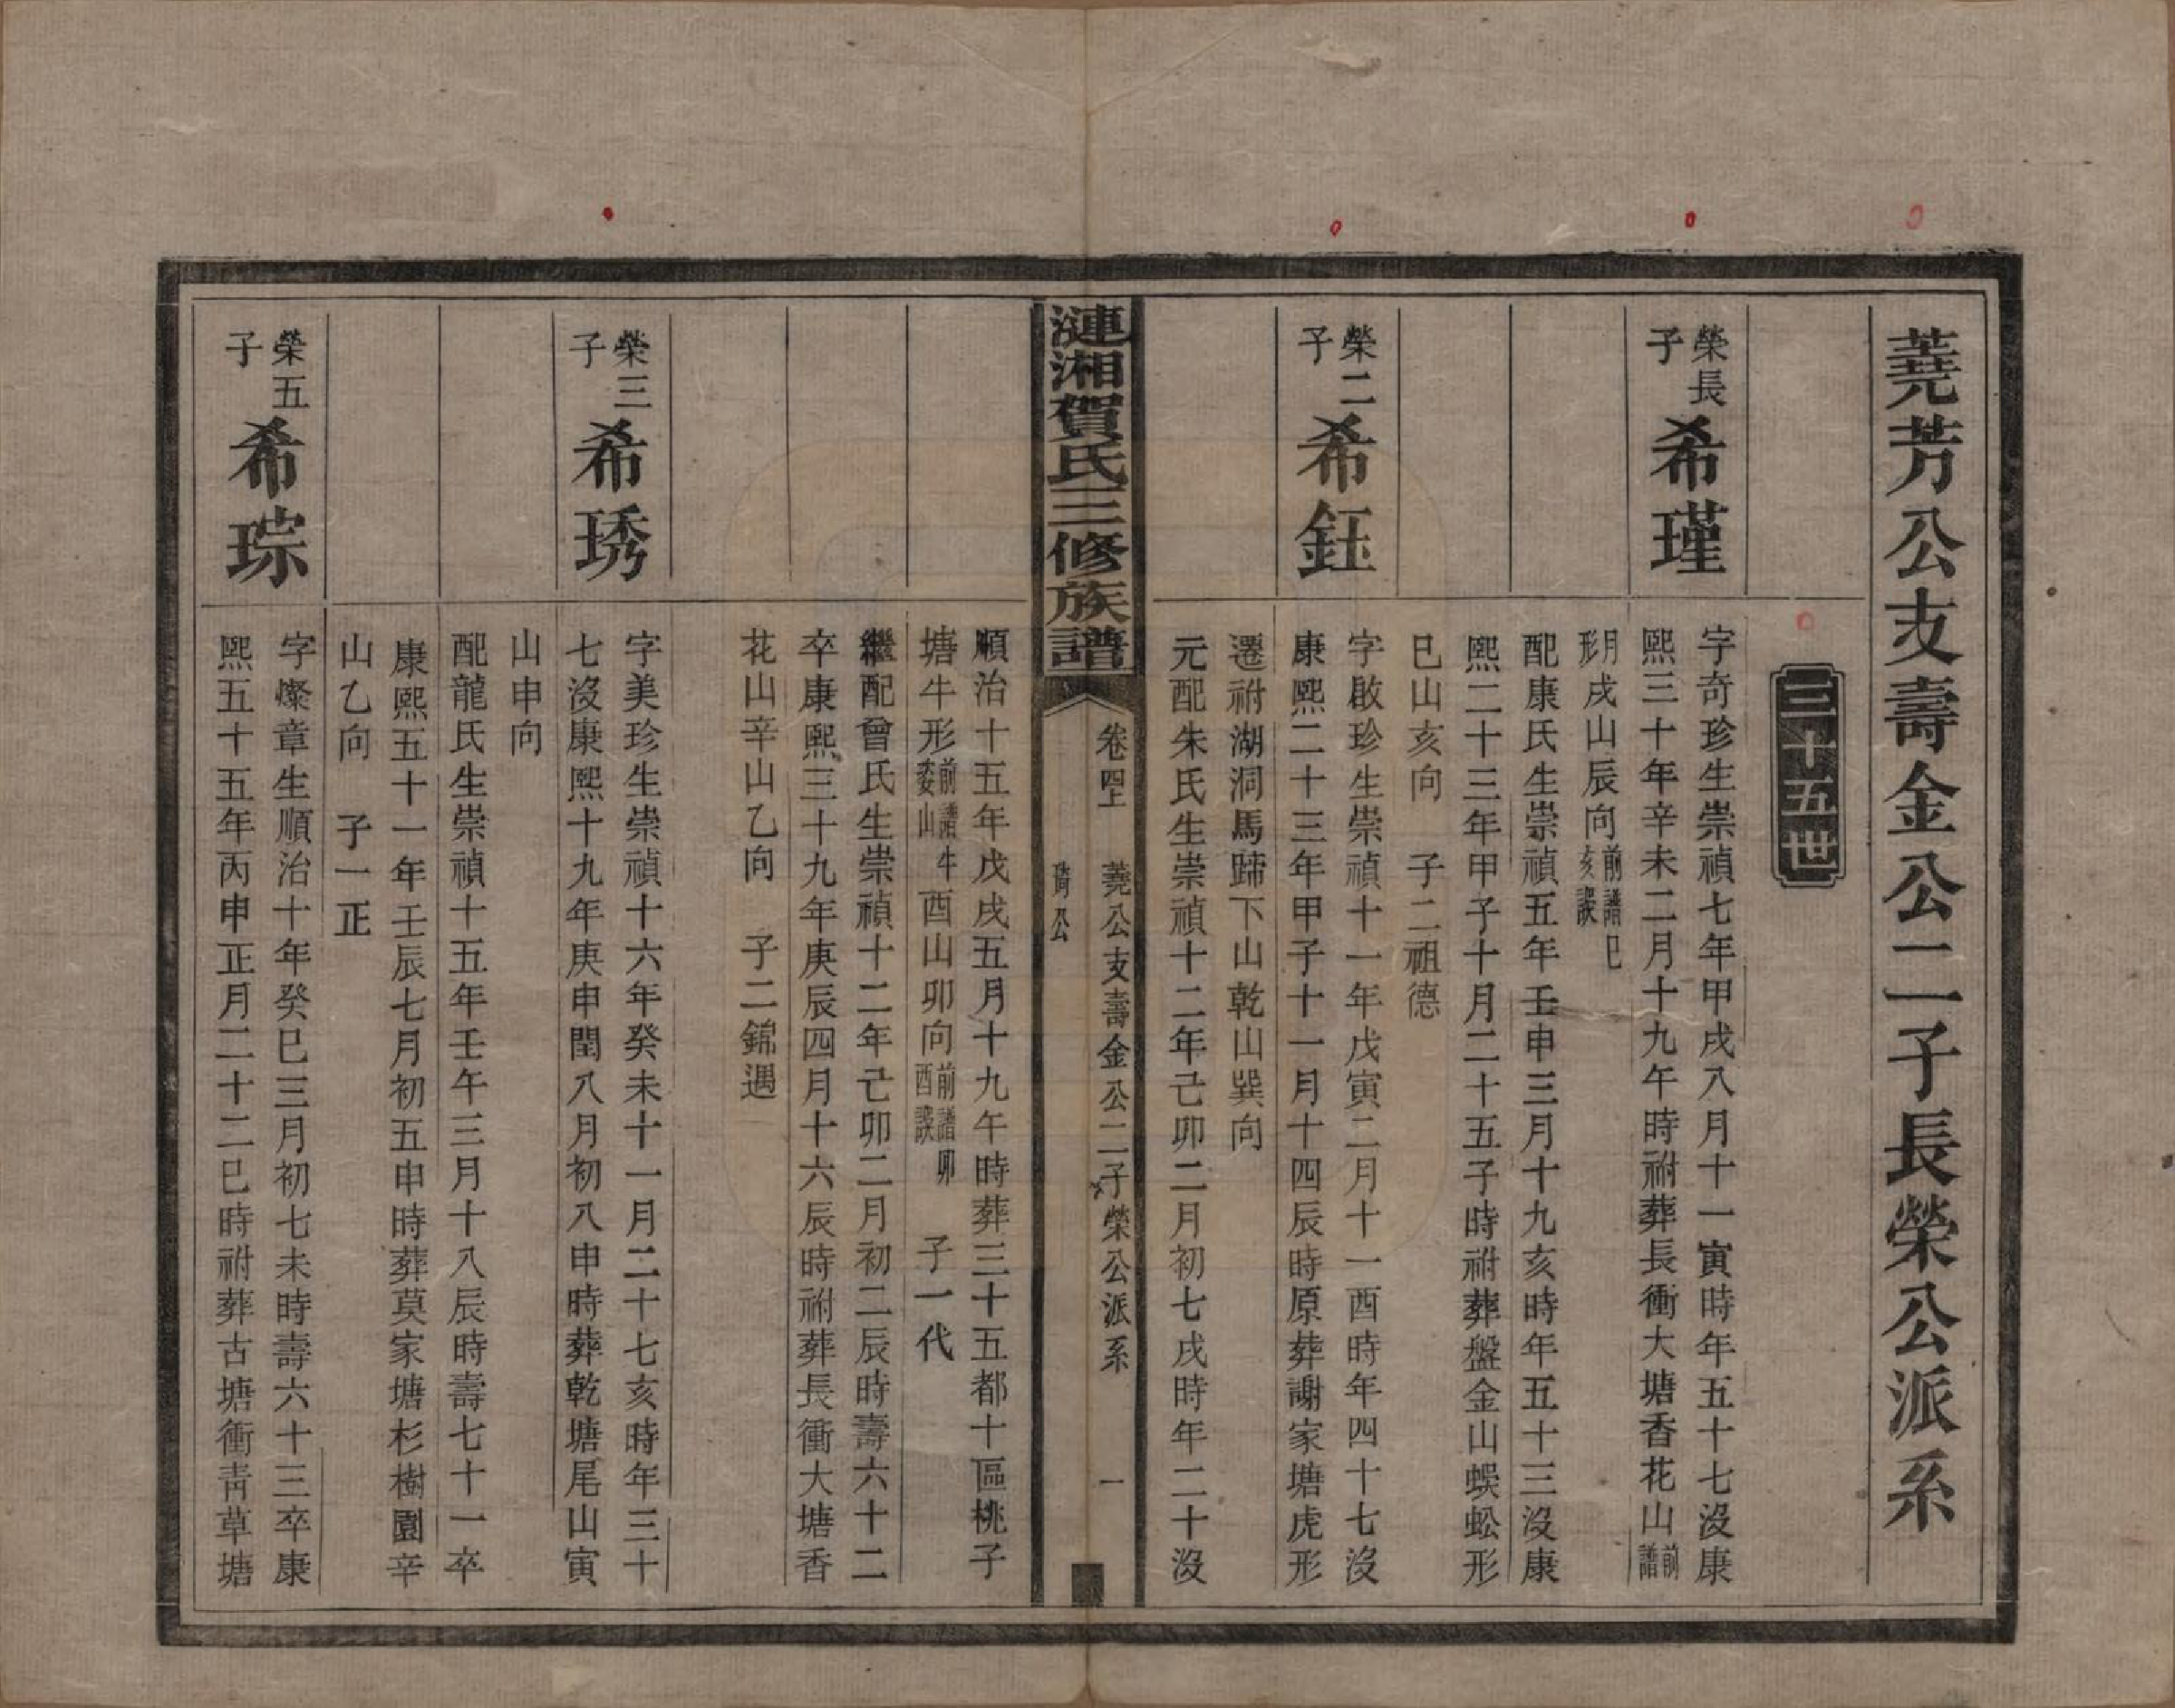 蕘芳公支壽金公二子長榮公派系
三十五世
榮長子
希瑾
字奇珍生崇禎七年甲戌八月十一寅時年五十七沒康
熙三十年辛未二月十九午時祔葬長衝大塘香花山前譜
月形戌山辰向前譜巳亥誤
配康氏生崇禎五年壬申三月十九亥時年五十三沒康
熙二十三年甲子十月二十五子時祔葬盤金山蜈蚣形
巳山亥向 子二祖德
榮二子
希鈺
字啟珍生崇禎十一年戊寅二月十一酉時年四十七沒
康熙二十三年甲子十一月十四辰時原葬謝家塘虎形
遷祔湖洞馬蹄下山乾山巽向
元配朱氏生崇禎十二年己卯二月初七戌時年二十沒
漣湘賀氏三修族譜
卷四上
蕘公支壽金公二子榮公派系
公
一
順治十五年戊戌五月十九午時葬三十五都十區桃子
塘牛形前譜牛委山酉山卯向前譜卯酉誤 子一代
繼配曾氏生崇禎十二年己卯二月初二辰時壽六十二
卒康熙三十九年庚辰四月十六辰時祔葬長衝大塘香
花山辛山乙向 子二錦遇
榮三子
希琇
字美珍生崇禎十六年癸未十一月二十七亥時年三十
七沒康熙十九年庚申閏八月初八申時葬乾塘尾山寅
山申向
配龍氏生崇禎十五年壬午三月十八辰時壽七十一卒
康熙五十一年壬辰七月初五申時葬莫家塘杉樹園辛
山乙向 子一正
榮五子
希琮
字燦章生順治十年癸巳三月初七未時壽六十三卒康
熙五十五年丙申正月二十二巳時祔葬古塘衝青草塘